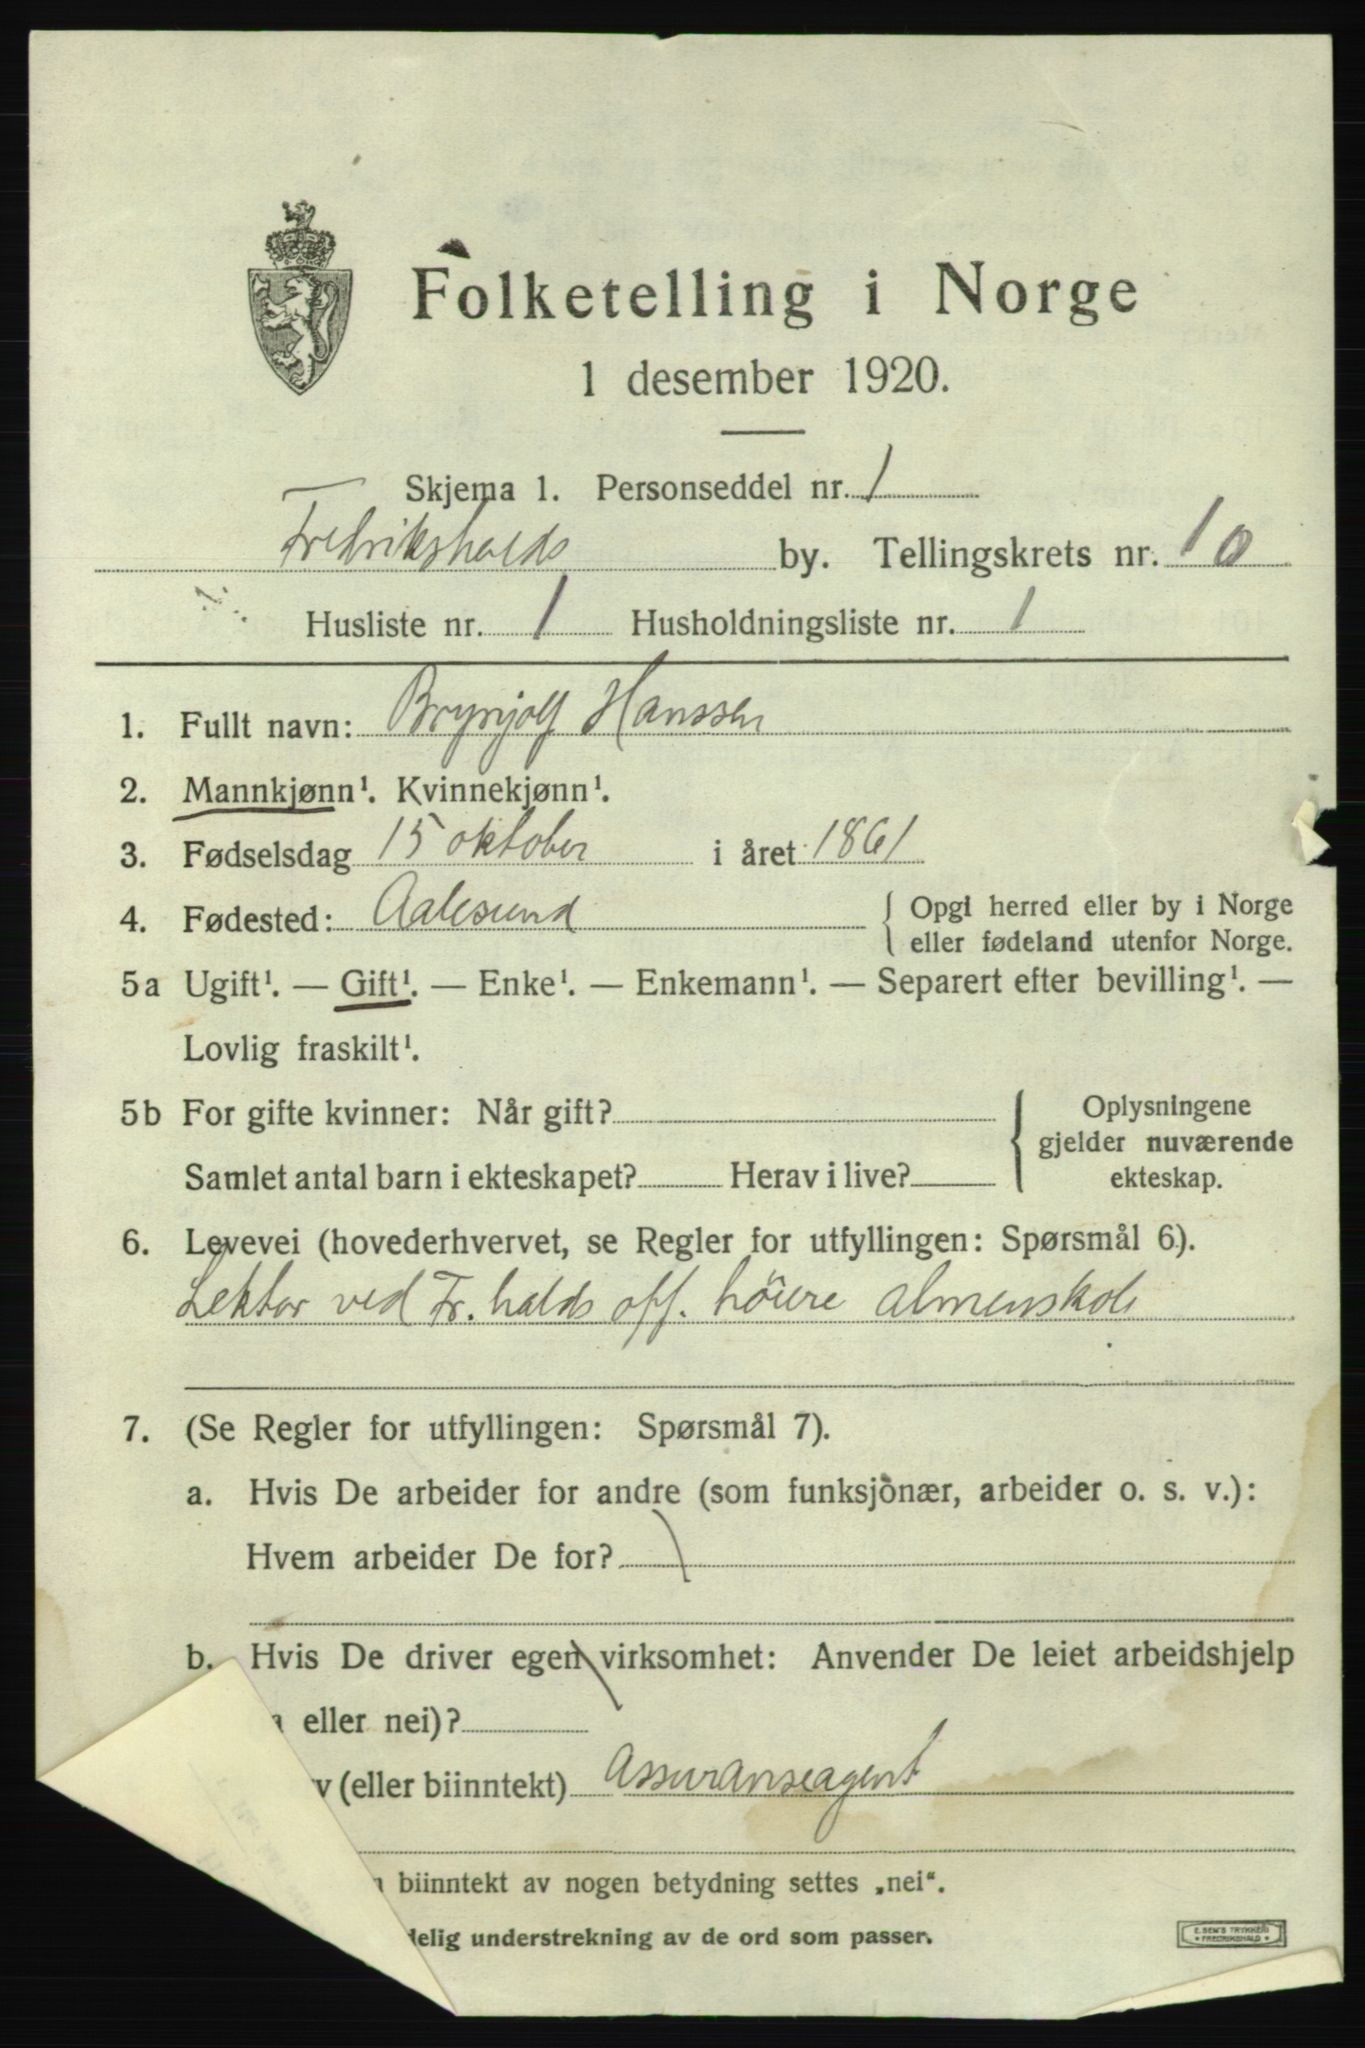 Folketelling i Norge
1 desember 1920.
Skjema 1. Personseddel nr. 1
Fredrikshalds by. Tellingskrets nr. 10
Husliste nr. 1 Husholdningsliste nr. 1
1. Fullt navn: Brynjolf Hanssen
2. Mannkjønn¹. Kvinnekjønn¹.
3. Fødselsdag 15 oktober i året 1861
4. Fødested: Aalesund { Opgi herred eller by i Norge
eller fødeland utenfor Norge.
5a Ugift¹. — Gift¹. — Enke¹. — Enkemann¹. — Separert efter bevilling¹. —
Lovlig fraskilt¹.
5b For gifte kvinner: Når gift? { Oplysningene
gjelder nuværende
Samlet antal barn i ekteskapet? Herav i live? ekteskap.
6. Levevei (hovederhvervet, se Regler for utfyllingen: Spørsmål 6).
Lektor ved Fr.halds off. höiere almenskole
7. (Se Regler for utfyllingen: Spørsmål 7).
a. Hvis De arbeider for andre (som funksjonær, arbeider o. s. v.):
Hvem arbeider De for?
b. Hvis De driver egen virksomhet: Anvender De leiet arbeidshjelp
eller nei)?
v (eller biinntekt) Assuranseagent
biinntekt av nogen betydning settes „nei“.
delig understrekning av de ord som passer.
E. SEM'S TRYKKERI
FREDRIKSHALD